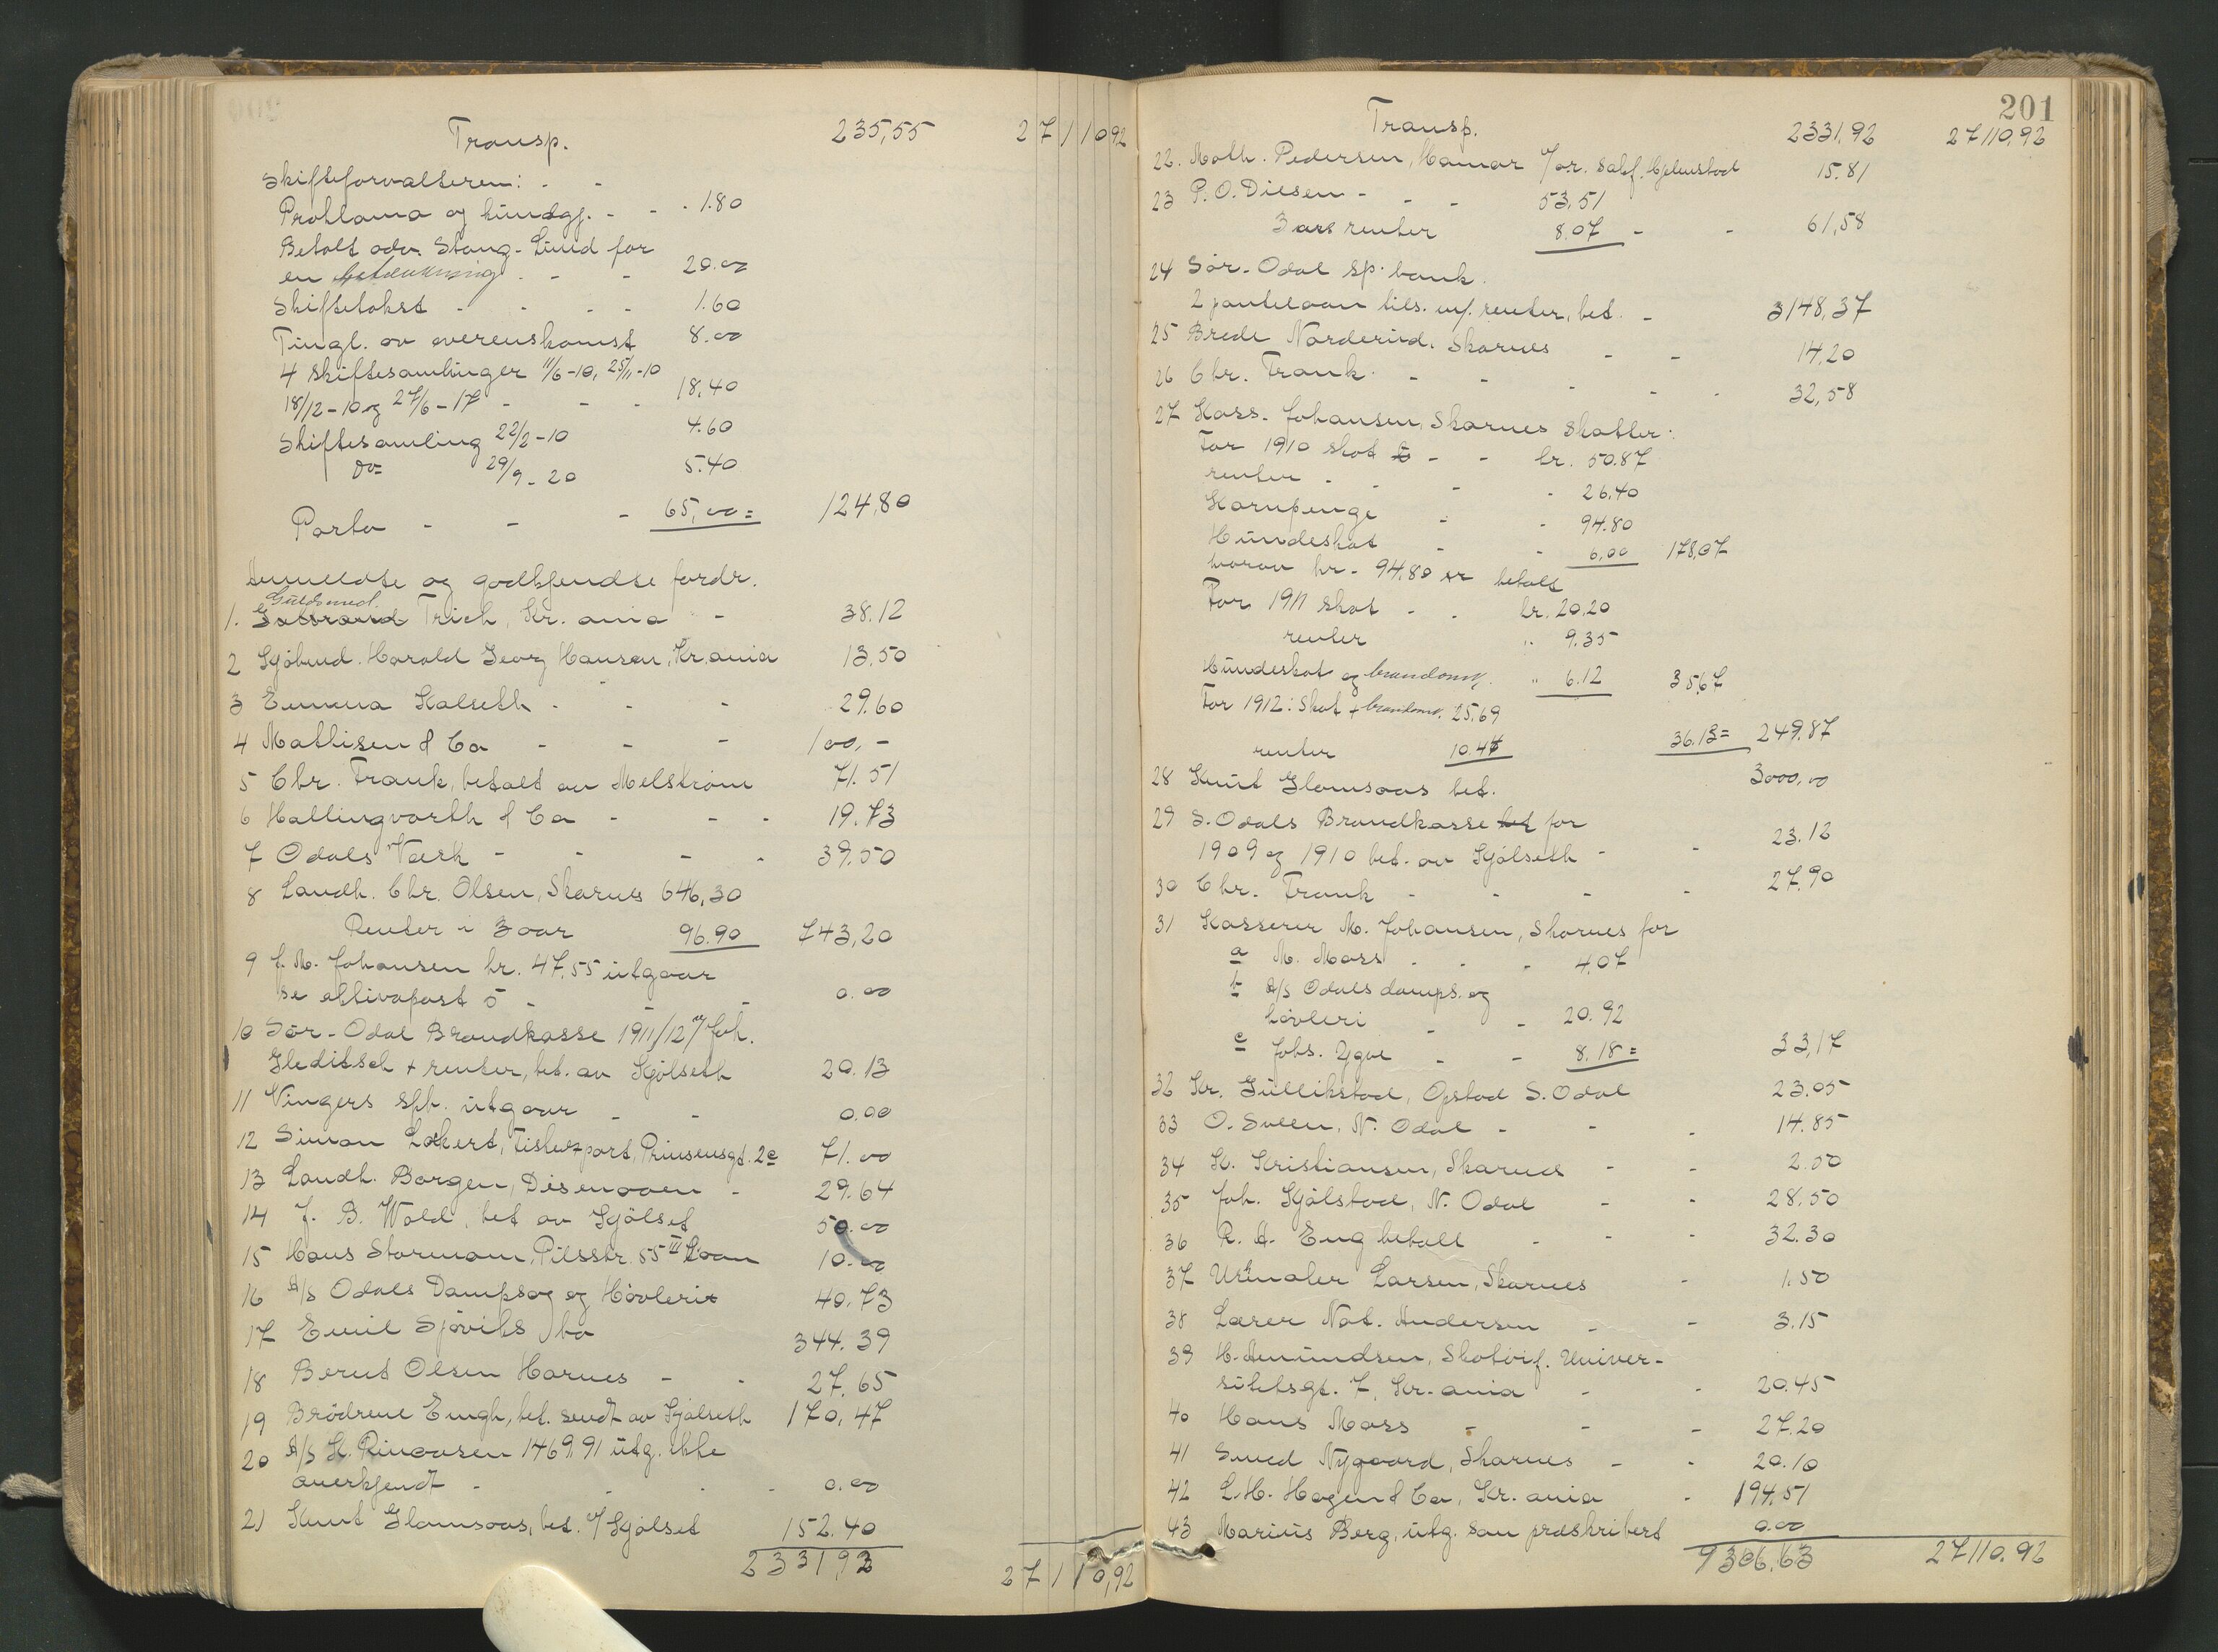 Transp. 235,55 27110,92
Skifteforvalteren: - -
Proklama og kundgj. - - - 1.80
Betalt odv. Stang-Lund for
en betænkning - - 20.00
Skiftetakst - - - - 1.60
Tingl. av overenskomst 8.00
4 skiftesamlinger 11/6-10, 25/11-10
18/12-10 og 27/6-17 - - - 18,40
Skiftesamling 22/2-10 4.60
do= 29/9-20 5.40
Porto - - - 65,00= 124,80
Anmeldte og godkjendte fordr.
Guldsmed.
1. Trich, Kr.ania - 38.12
2 Harald Georg Hansen, Kr.ania 13,50
3 Emma Kalseth - - - 29.60
4 Mathisen & Co - - - 100,-
5 Chr. Frank, betalt av Melström 71.51
6 Hallingvorth & Co - - - 19.73
7 Odals Værk - - - - 39.50
8 Landh. Chr. Olsen, Skarnes 646,30
Renter i 3 aar 96.90 743,20
9 J. M. Johansen kr. 47.55 utgaar
se aktivapost 5 - - 0.00
10 Sør-Odal Brandkasse 1911/12 v/ Joh.
Gleditsch + renter, bet. av Kjölseth 20.13
11 Vingers spk. utgaar - - 0.00
12 Simon Lökert, Prinsensgt. 2c 71.00
13 Landh. Borgen, Disenaaen - 29.64
14 J. B. Wold, bet av Kjölset 50.00
15 Hans Stormoen, Pilsstr. 55 III 10.00
16 A/S Odals Dampsag og Hövleri 40.73
17 Emil Sjöviks bo 344.39
18 Bernt Olsen Harnes - - 27.65
19 Brödrene Engh, bet. sendt av Kjölseth 170,47
20 A/S K. Rincansen 1469.91 utg. ikke
anerkjendt - - - - 0.00
21 Knut Glomsaas, bet. v/ Kjölset 152.40
2331,92 27110,92
201
Transp. 2331,92 27110,92
22. Math. Pedersen, Hamar 15.81
23 P. O. Disen - - - 53,51
3 aars renter 8.07 - - 61,58
24 Sør-Odal sp.bank.
2 pantelaan tils. m/ renter, bet. - 3148,37
25 Brede Norderud, Skarnes - - 14,20
26 Chr. Frank. - - - - - 32,58
27 Kass. Johansen, Skarnes Skatter:
For 1910 skat - - kr. 50.87
renter - - - - 26,40
Kornpenge - - 94.80
Hundeskat - - 6,00 178,07
hvorav kr. 94.80 er betalt
For 1911 skat - - kr. 20,20
renter " 9.35
Hundeskat og brandomk. " 6.12 35,67
For 1912: Skat + brandomk. 25,69
renter 10.44 36.13= 249,87
28 Knut Glomsaas bet. 3000,00
29 S. Odals Brandkasse for
1909 og 1910 bet. av Kjölseth - - 23.12
30 Chr. Frank - - - - 27.90
31 Kasserer M. Johansen, Skarnes for
a M. Moss - - - 4,07
b A/S Odals damps. og
hövleri - - 20.92
c Johs. Ygve - - 8.18= 33,17
32 Kr. Gullikstad, Opstad S. Odal 23.05
33 O. Sveen, N. Odal - - - 14.85
34 K. Kristiansen, Skarnes - - 2.00
35 Joh. Kjölstad, N. Odal - - 28.50
36 R. A. Eng betalt - - - 32.30
37 Urmaker Larsen, Skarnes - 1.50
38 Lærer Nat. Andersen - - 3.15
39 H. Amundsen, Skotöif. Univer-
sitetsgt. 7, Kr.ania - - 20.45
40 Hans Moss - - - 27.20
41 Smed Nygaard, Skarnes - - 20.10
42 L. H. Hagen & Co, Kr.ania - 194.51
43 Marius Berg, utg. som præskribert 0.00
9306,63 27110.92